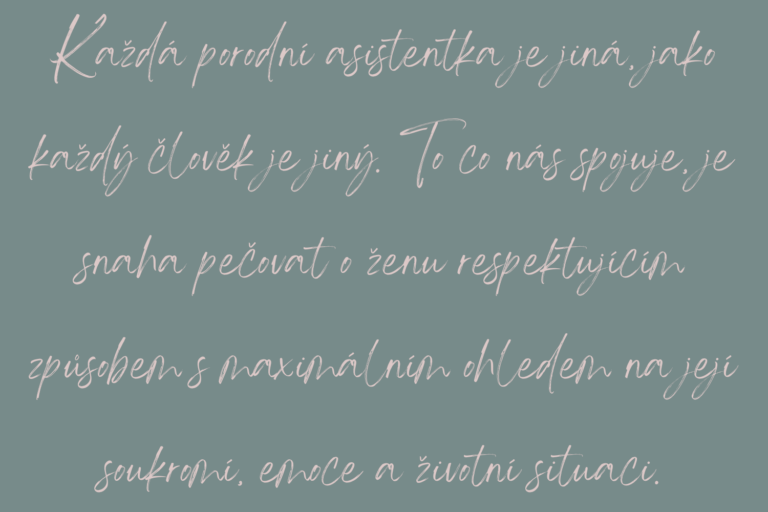 Každá porodní asistentka je jiná, jako
každý člověk je jiný. To co nás spojuje, je
snaha pečovat o ženu respektujícím
způsobem s maximálním ohledem na její
soukromí, emoce a životní situaci.